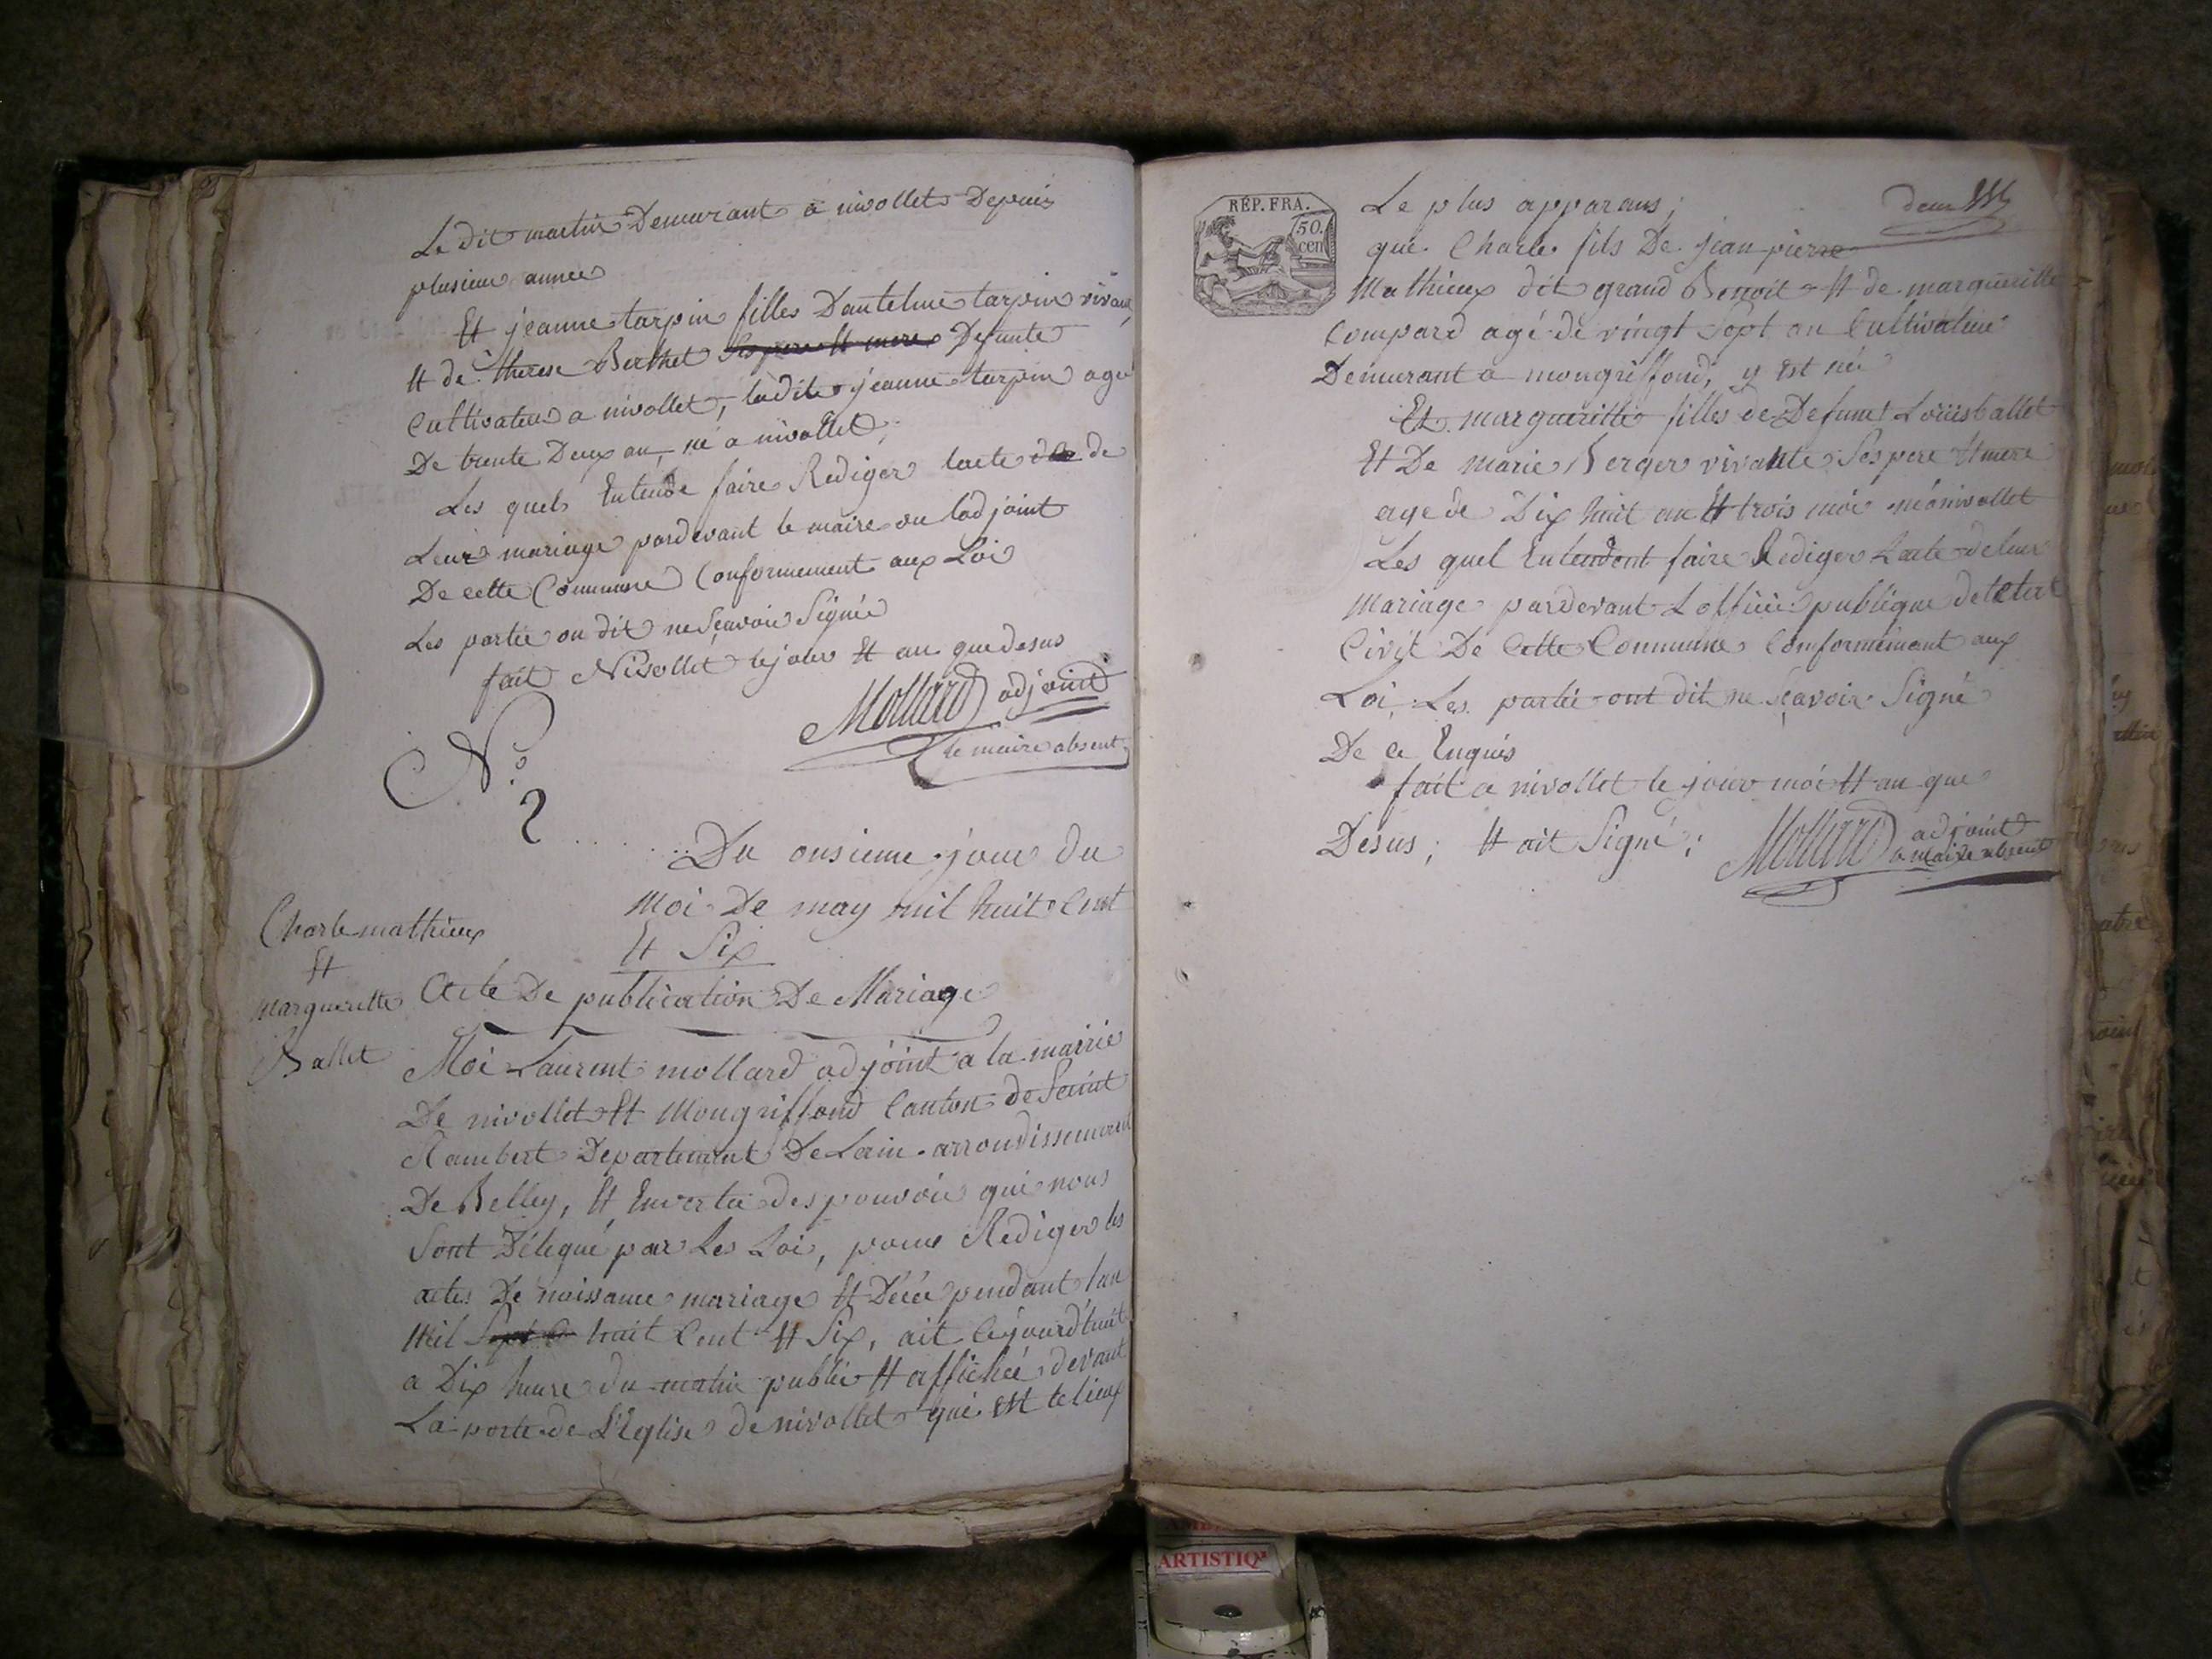 Le dit martin Demeurant a nivollet Depuis
plusieur annee
Et jeanne tarpin filles Dantelme tarpin vivant
Et de therese Berthet Ses pere Et mere Defunte
Cultivateur a nivollet, ladite jeanne tarpin agé
De trente Deux an, né a nivollet,
Les quels Entende faire Rediger lacte de
Leur mariage pardevant le maire ou ladjoint
De cette Commune Conformement aux Loi
Les partie on dit ne Sçavoir Signée
fait Nivollet le jour Et an que desus
Mollard adjoint
le maire absent
N.o
2
Du onsieme jour du
Moi De may mil huit Cent
Et Six
Charle mathieux
Et
margueritte
Ballet
Acte De publication De Mariage
Moi Laurent mollard adjoint a la mairie
De nivollet Et Mongriffond Canton de Saint
Rambert Departement De Lain arrondissement
De Belley, Et Envertu des pouvoir qui nous
Sont Délegué par Les Loi, pour Rediger les
actes De naissance mariage Et Décé pendant lan
Mil huit Cent Et Six, ait Cejourd'huit
a Dix heure du matin publié Et affichée devant
La porte de L'Eglise de nivollet qui est le lieux
RÉP. FRA.
50.
cen
deux
Le plus apparans;
que Charle fils De jean pierre
Mathieux dit grand Benoit Et de marguerille
Compard agé de vingt Sept an Cultivateur
Demeurant a mongriffond, y est né
Et marguerithe filles de Defunt Loüis ballet
Et De marie Berger vivante Ses pere Et mere
agé de Dix huit an Et trois moi né a nivollet
Les quel Entendent faire Rediger Lacte de leur
Mariage pardevant Lofficié publique de letat
Civil De Cette Commune Comformemant aux
Loi, Les partie ont dit ne Sçavoir Signé
De ce Enquis
fait a nivollet le jour moi Et an que
Desus; Et ait Signé;
Mollard adjoint
le maire absent
ARTISTIQ